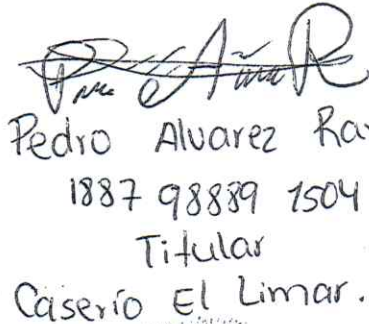 Pedro Alvarez
1887 98889 1504
Titular
Caserío El Limar.